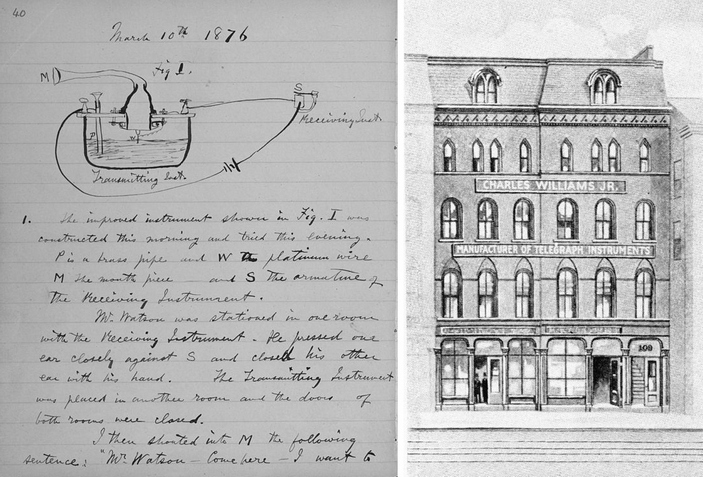 40
March 10th 1876
Fig 1.
M
S
Receiving Inst.
P
W
Transmitting Inst.
1. The improved instrument shown in Fig. I was
constructed this morning and tried this evening.
P is a brass pipe and W the platinum wire
M the mouth piece and S the armature of
the Receiving Instrument.
Mr. Watson was stationed in one room
with the Receiving Instrument. He pressed one
ear closely against S and closed his other
ear with his hand. The Transmitting Instrument
was placed in another room and the doors of
both rooms were closed.
I then shouted into M the following
sentence: "Mr. Watson – Come here – I want to
CHARLES WILLIAMS JR.
MANUFACTURER OF TELEGRAPH INSTRUMENTS
109